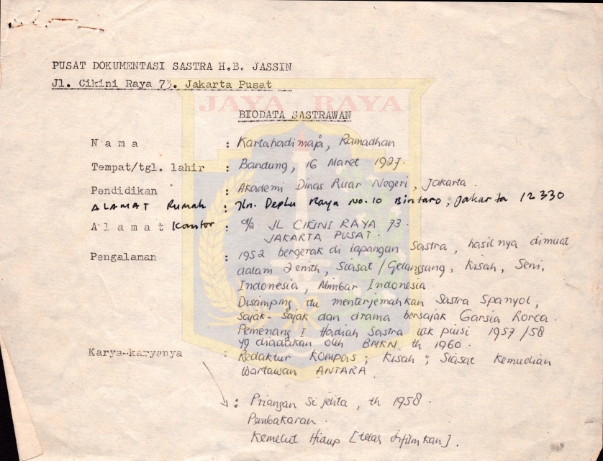 PUSAT DOKUMENTASI SASTRA H.B. JASSIN
Jl. Cikini Raya 73. Jakarta Pusat
JAYA RAYA
BIODATA SASTRAWAN
N a m a : Kartahadimaja, Ramadhan
Tempat/tgl. lahir : Bandung, 16 Maret 1927.
Pendidikan : Akademi Dinas Luar Negeri, Jakarta.
ALAMAT Rumah : Jln. Deplu Raya No. 10 Bintaro; Jakarta 12330
A l a m a t Kantor : d/a JL CIKINI RAYA 73.
JAKARTA PUSAT.
Pengalaman : 1952 bergerak di lapangan sastra, hasilnya dimuat
dalam Zenith, Siasat/Gelanggang, Kisah, Seni,
Indonesia, Mimbar Indonesia
Disamping itu menterjemahkan Sastra Spanyol,
sajak-sajak dan drama bersajak Garsia Lorca.
Pemenang I Hadiah Sastra utk puisi 1957/58
yg diadakan oleh BMKN th 1960.
Karya-karyanya : Redaktur KOMPAS; Kisah; Siasat kemudian
Wartawan ANTARA.
: Priangan Si Jelita, th 1958.
Pembakaran.
Kemelut Hidup [telah difilmkan].